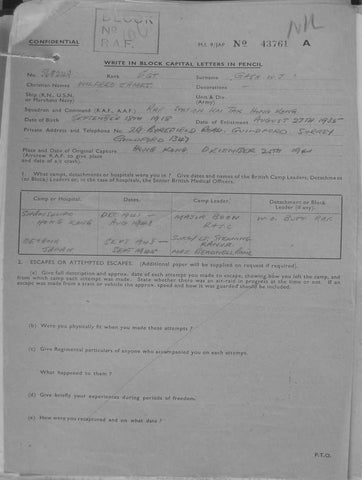 BLOCK
No
R.A.F.
CONFIDENTIAL
M.I. 9/JAP No 43761 A
WRITE IN BLOCK CAPITAL LETTERS IN PENCIL
No. Rank Surname
Christian Names WILFRED JAMES Decorations -
Ship (R.N., U.S.N. or Merchant Navy) Unit & Div. (Army)
Squadron and Command (R.A.F., A.A.F.) RAF STATION KAI TAK HONG KONG
Date of Birth SEPTEMBER 18TH 1918 Date of Enlistment AUGUST 27TH 1935
Private Address and Telephone No. ROAD, GUILDFORD, SURREY
GUILDFORD
Place and Date of Original Capture HONG KONG, DECEMBER 25TH 1941
(Aircrew R.A.F. to give place and date of a/c crash).
1. What camps, detachments or hospitals were you in? Give dates and names of the British Camp Leaders, Detachment (or Block) Leaders or, in the case of hospitals, the Senior British Medical Officers.
Camp or Hospital. Dates. Camp Leader. Detachment or Block Leader (if any).
SHAMSHUIPO DEC 1941 - MAJOR BOON W.O. RAF
HONG KONG
JAPAN
2. ESCAPES OR ATTEMPTED ESCAPES. (Additional paper will be supplied on request if required).
(a) Give full description and approx. date of each attempt you made to escape, showing how you left the camp, and from which camp each attempt was made. State whether there was an air-raid in progress at the time or not. If an escape was made from a train or vehicle the approx. speed and how it was guarded should be included.
(b) Were you physically fit when you made these attempts?
(c) Give Regimental particulars of anyone who accompanied you on each attempt.
What happened to them?
(d) Give briefly your experiences during periods of freedom.
(e) How were you recaptured and on what date?
P.T.O.